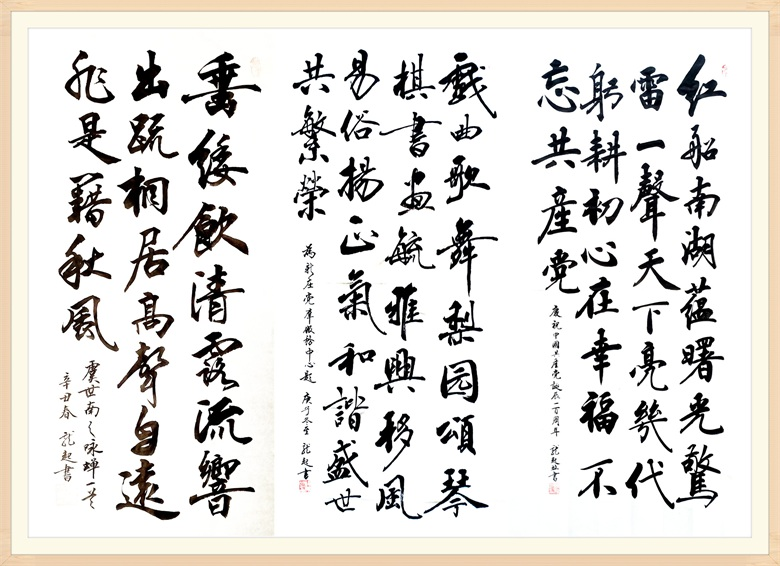 红船南湖蕴曙光驚
雷一聲天下亮幾代
躬耕初心在幸福不
忘共産党
慶祝中国共産党誕辰一百周年 龍起書
戲曲歌舞梨园頌琴
棋書画毓雅興移風
易俗揚正氣和諧盛世
共繁榮
為新庄党羣服務中心題 庚子冬至 龍起書
垂緌飲清露流響
出疏桐居高聲自遠
非是籍秋風
虞世南之咏蟬一首
辛丑春 龍起書